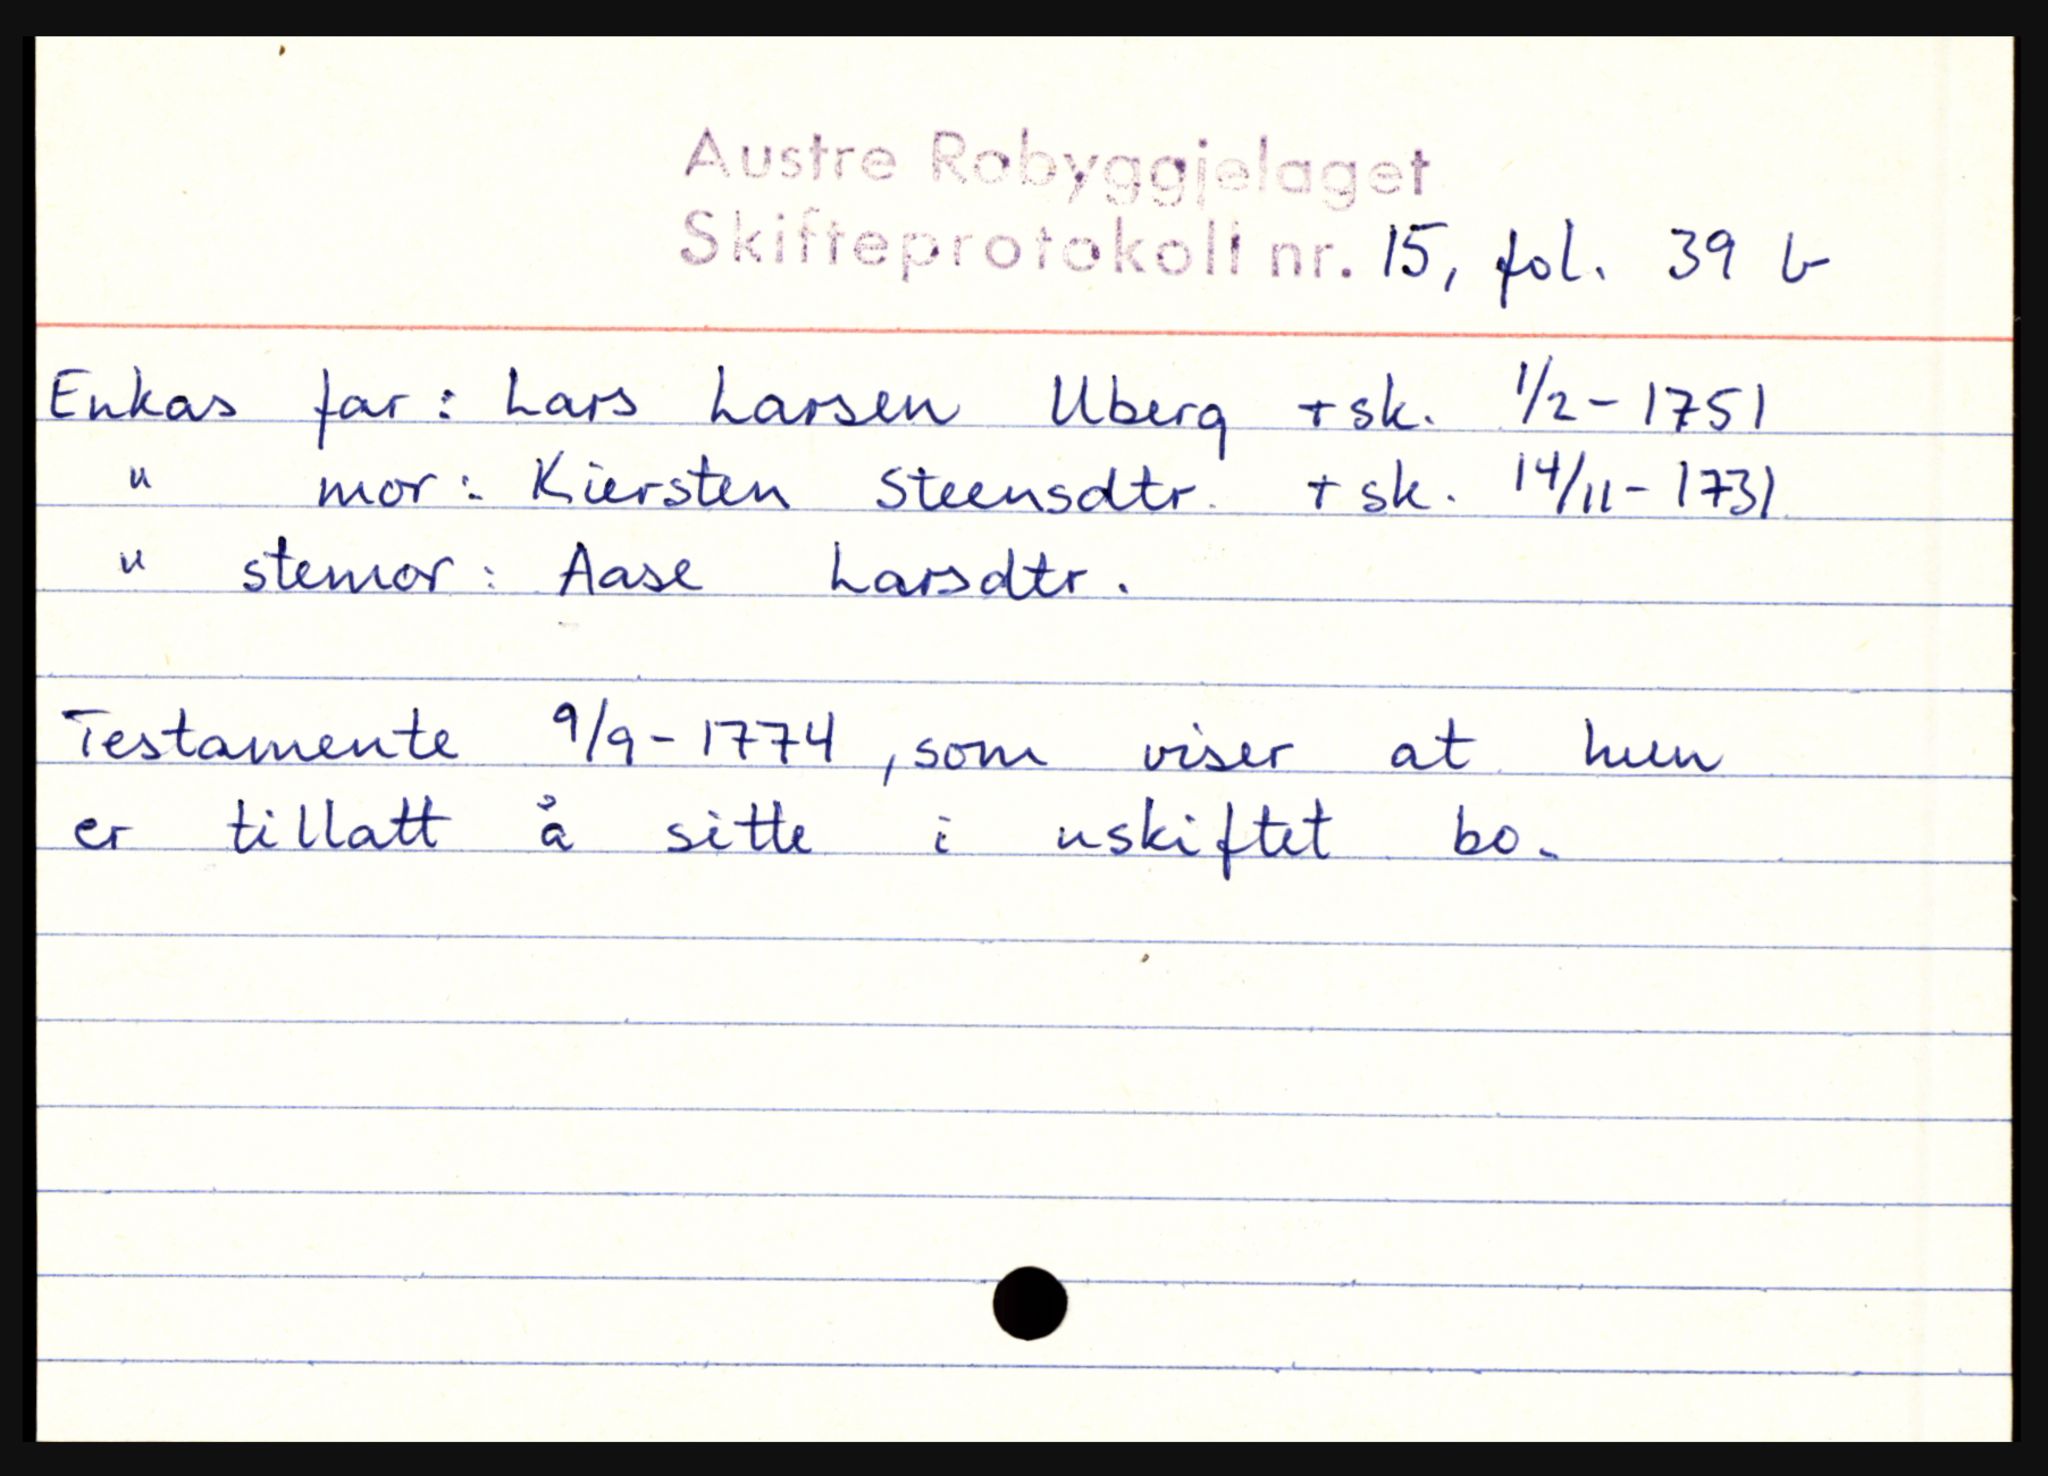 Austre Robyggjelaget
Skifteprotokoll nr. 15, fol. 39 b
Enkas far: Lars Larsen Uberg + sk. 1/2-1751
" mor: Kiersten Steensdtr. + sk. 14/11-1731
" stemor: Aase Larsdtr.
Testamente 9/9-1774, som viser at hun
er tillatt å sitte i uskiftet bo.